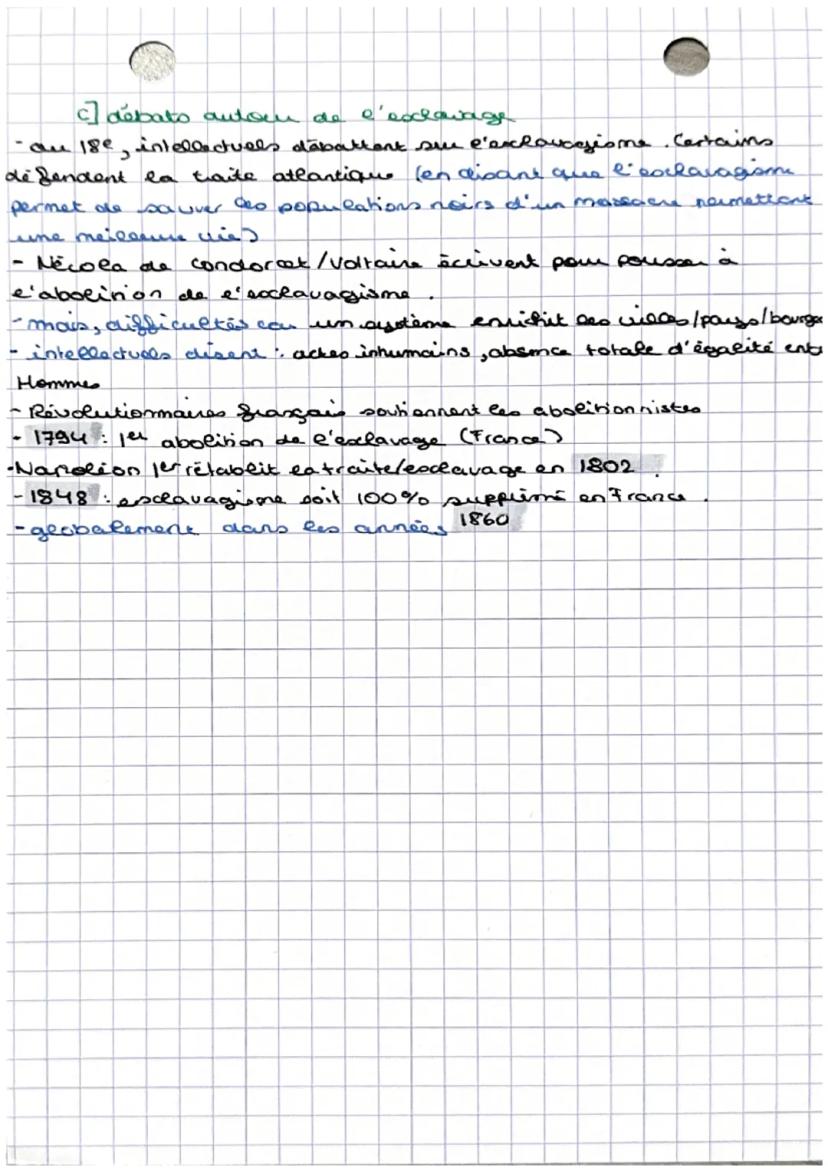 c] débats autour de l'esclavage
- au 18e, intellectuels débattent sur l'esclavagisme. Certains
défendent la traite atlantique (en disant que l'esclavagisme
permet de sauver les populations noirs d'un massacre permettant
une meilleure vie)
- Nicola de condorcet / Voltaire écrivent pour pousser à
l'abolition de l'esclavagisme.
- mais, difficultés car un système enrichit les villes/pays/bourge
- intellectuels disent : actes inhumains, absence totale d'égalité ent
Hommes
- Révolutionnaires français soutiennent les abolitionnistes
- 1794 : 1er abolition de l'esclavage (France)
- Napoléon 1er rétablit la traite/esclavage en 1802.
- 1848 : esclavagisme soit 100% supprimé en France.
- globalement dans les années 1860